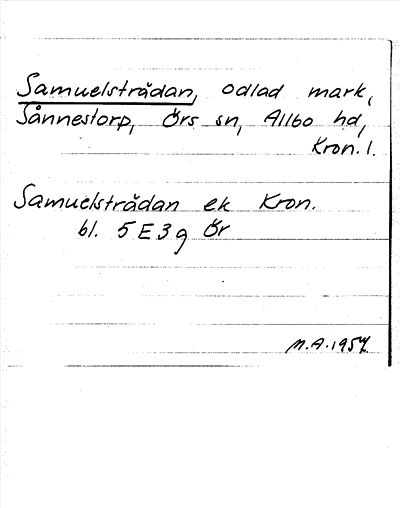 Samuelsträdan, odlad mark,
Sånnestorp, Örs sn, Allbo hd,
Kron. l.
Samuelsträdan ek Kron.
bl. 5E3g Ör
M.A. 1957.